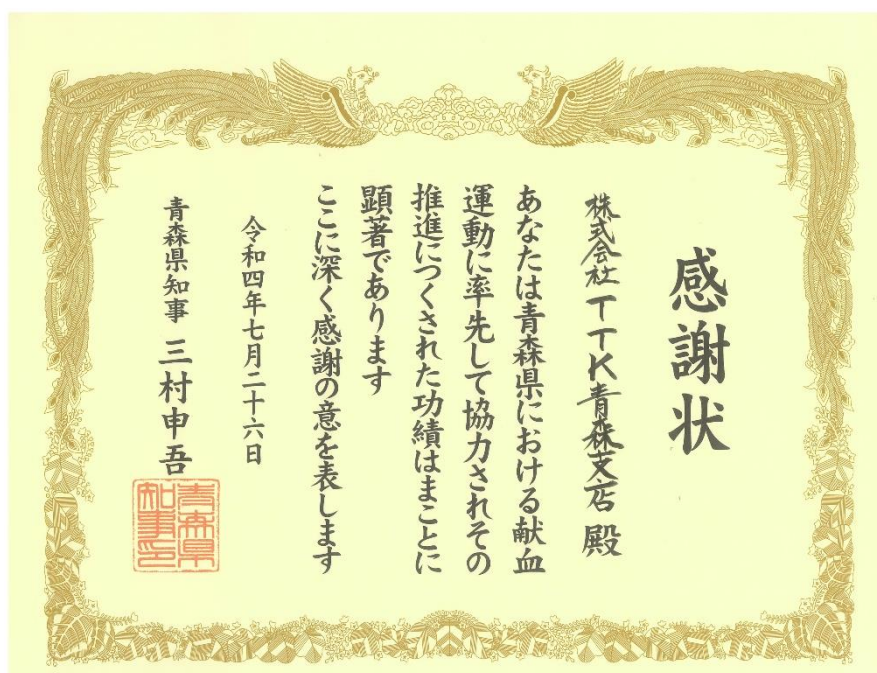 感謝状
株式会社TTK青森支店 殿
あなたは青森県における献血
運動に率先して協力されその
推進につくされた功績はまことに
顕著であります
ここに深く感謝の意を表します
令和四年七月二十六日
青森県知事 三村申吾
青森県
知事印